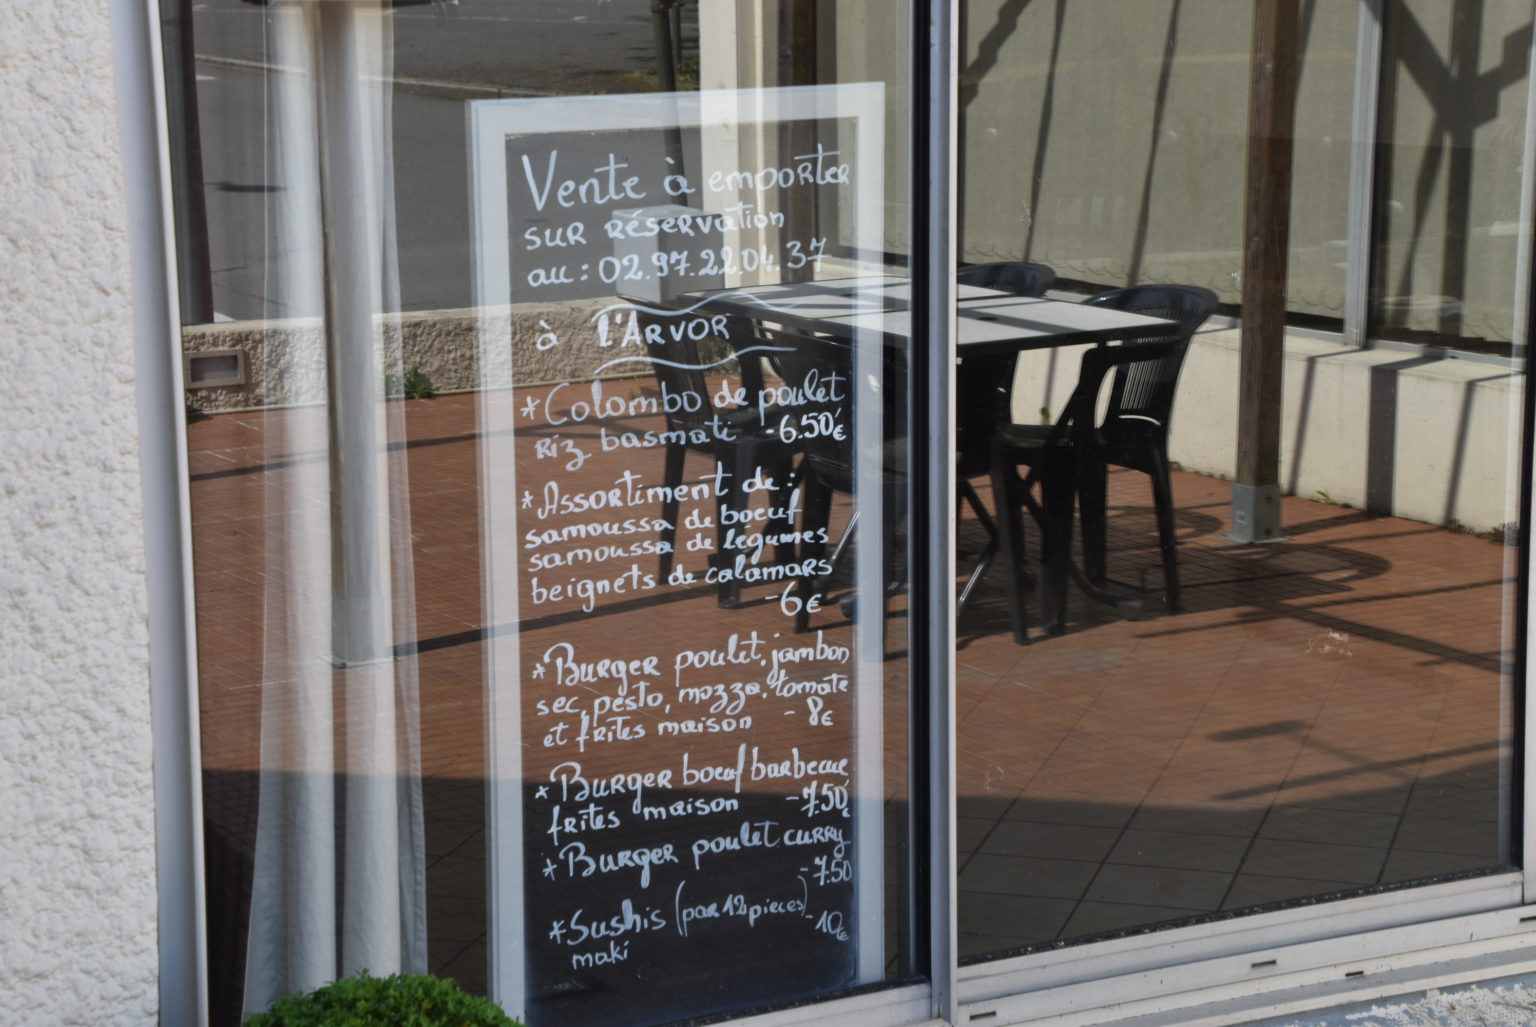 Vente à emporter
sur réservation
au : 02.97.22.04.37
à l'Arvor
*Colombo de poulet
riz basmati - 6.50€
*Assortiment de :
samoussa de boeuf
samoussa de légumes
beignets de calamars
- 6€
*Burger poulet, jambon
sec, pesto, mozza, tomate
et frites maison - 8€
*Burger boeuf barbecue
frites maison - 7.50€
*Burger poulet curry
- 7.50
*Sushis (par 12 pieces) - 10€
maki